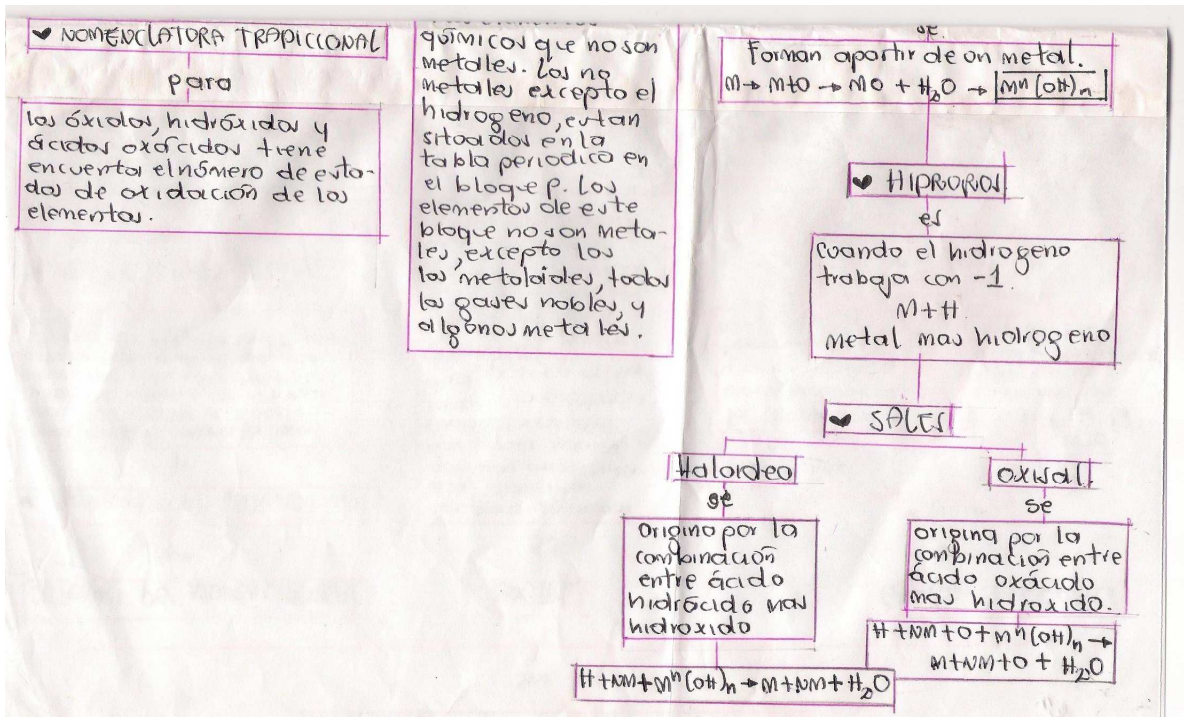 NOMENCLATURA TRADICCIONAL
para
los óxidos, hidróxidos y
ácidos oxácidos tiene
encuenta el número de esta-
dos de oxidación de los
elementos.
químicos que no son
metales. Los no
metales excepto el
hidrogeno, estan
situados en la
tabla periodica en
el bloque p. Los
elementos de este
bloque no son meta-
les, excepto los
los metaloides, todos
los gases nobles, y
algunos metales.
se
Forman apartir de un metal.
M→ M+O → MO + H₂O → Mⁿ(OH)ₙ
HIDROROS
es
cuando el hidrogeno
trabaja con -1.
M+H
metal mas hidrogeno
SALES
Haloideo
se
origina por la
combinación
entre ácido
hidrácido mas
hidroxido
H+NM+Mⁿ(OH)ₙ→M+NM+H₂O
oxisal
se
origina por la
combinación entre
ácido oxácido
mas hidroxido.
H+NM+O+Mⁿ(OH)ₙ→
M+NM+O + H₂O